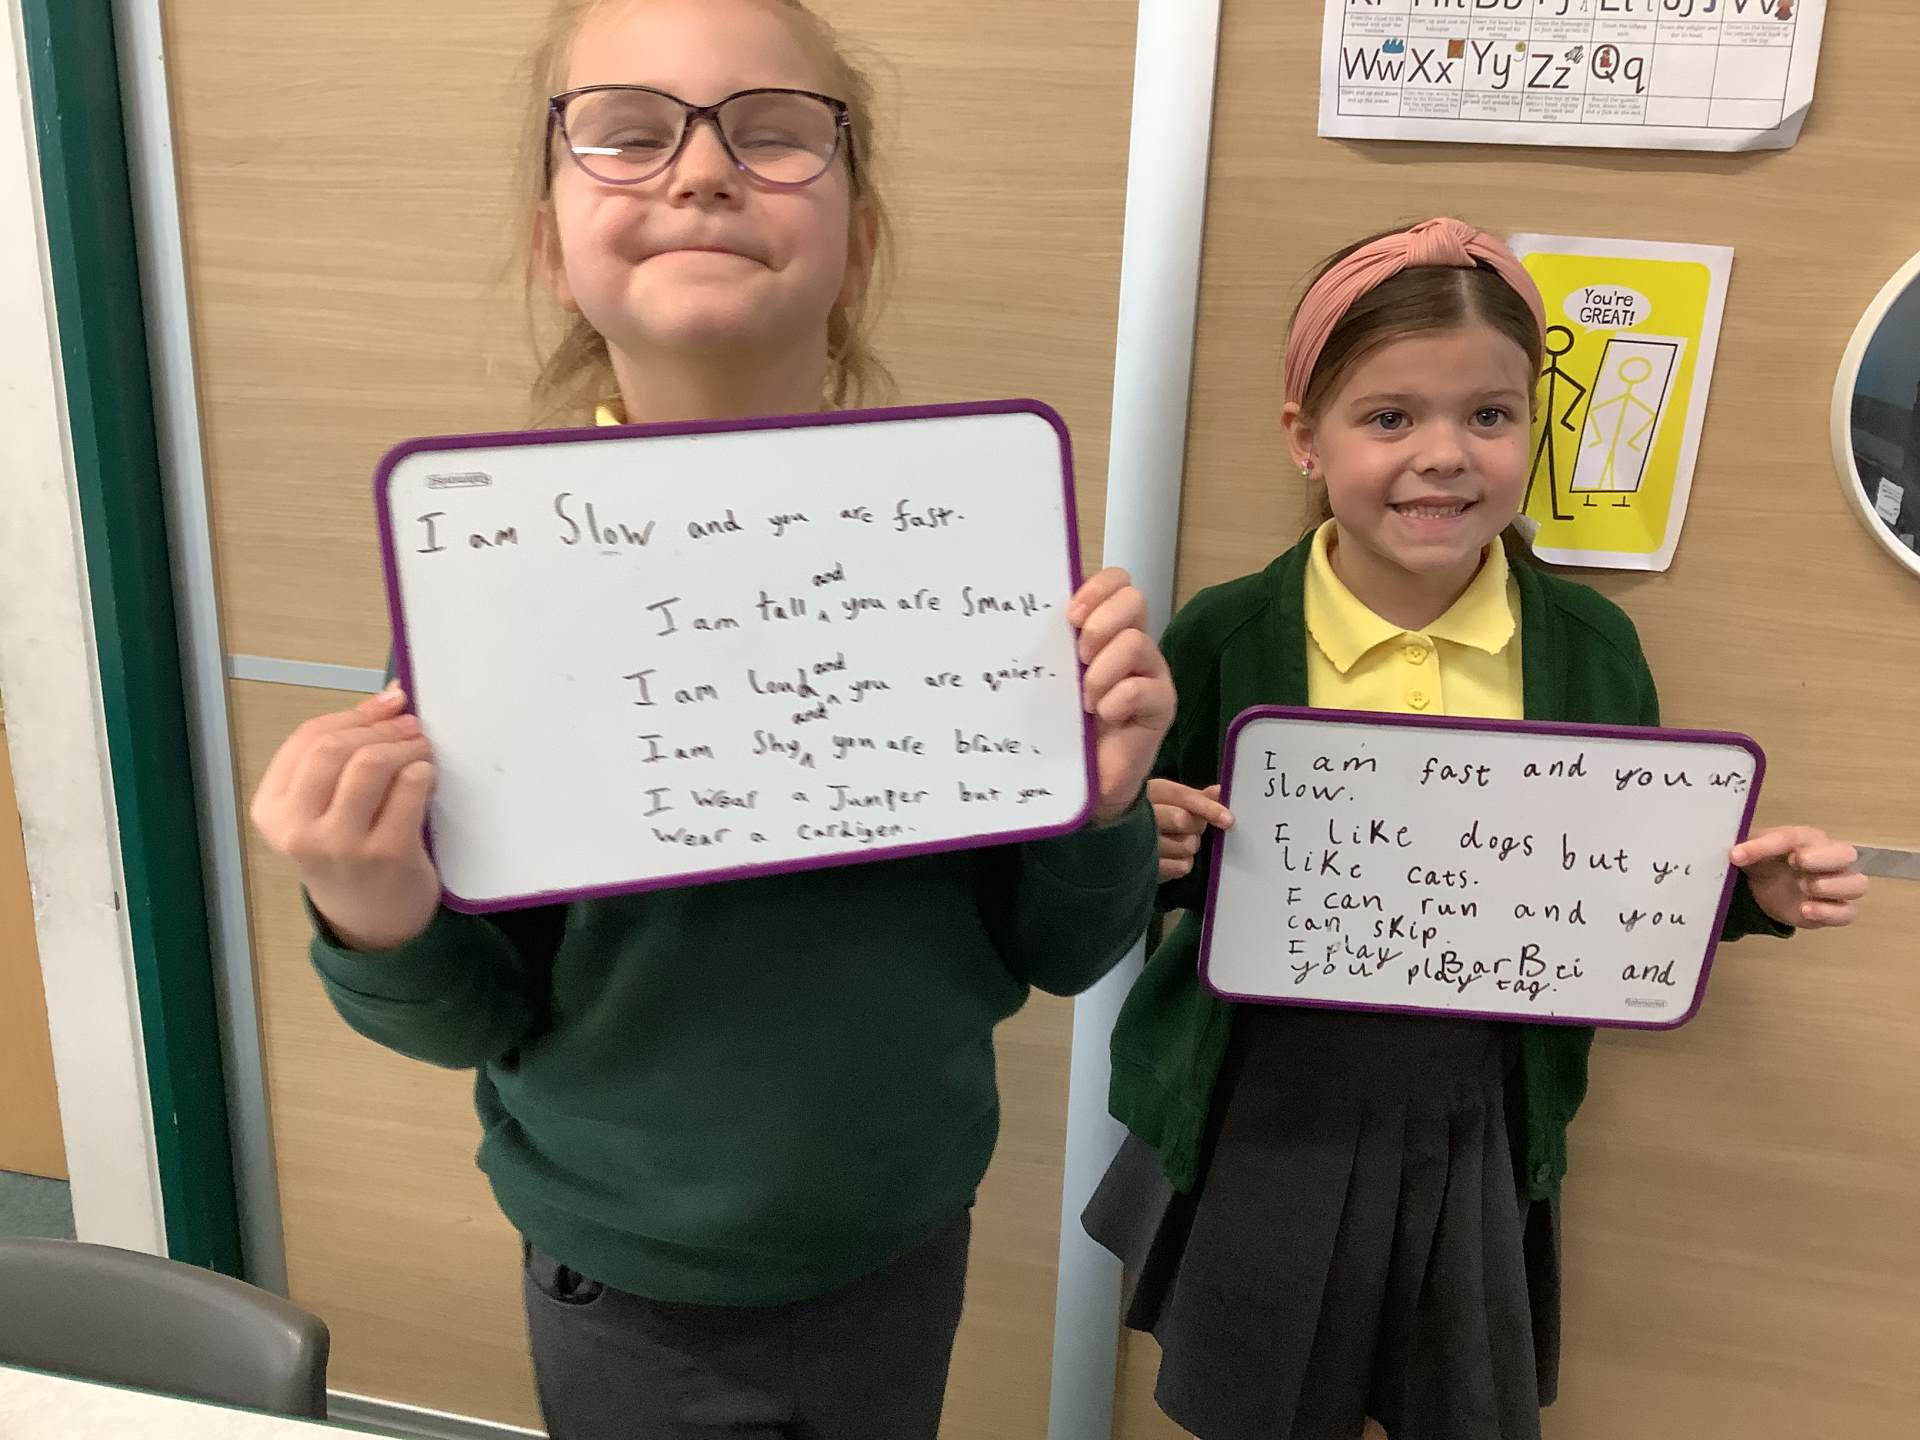 Ww Xx Yy Zz Qq
You're
GREAT!
I am Slow and you are fast.
and
I am tall ^ you are Small.
and
I am loud ^ you are quiet.
and
I am Shy ^ you are brave.
I Wear a Jumper but you
Wear a cardigen.
I am fast and you are
slow.
I like dogs but
like cats.
I can run and you
can skip.
I play BarBei and
you play tag.